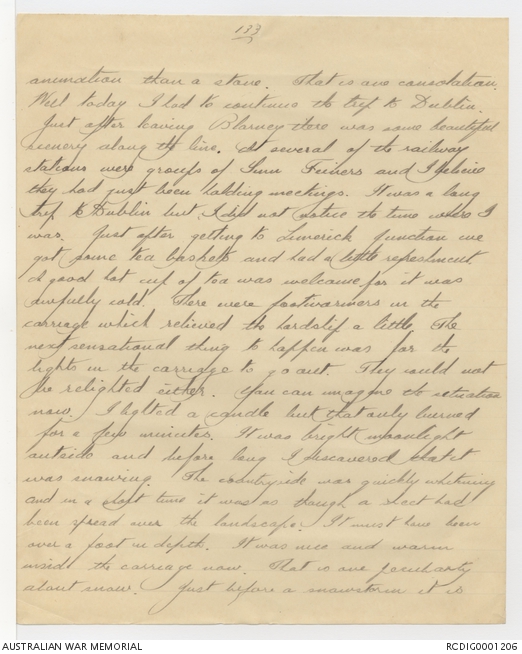 133
animation than a stone. That is one consolation.
Well today I had to continue the trip to Dublin.
Just after leaving Blarney there was some beautiful
scenery along the line. At several of the railway
stations were groups of Sinn Feiners and I believe
they had just been holding meetings. It was a long
trip to Dublin but I did not notice the time where I
was. Just after getting to Limerick Junction we
got some tea baskets and had a little refreshment.
A good hot cup of tea was welcome for it was
awfully cold. There were footwarmers in the
carriage which relieved the hardship a little. The
next sensational thing to happen was for the
lights in the carriage to go out. They could not
be relighted either. You can imagine the situation
now. I lighted a candle but that only burned
for a few minutes. It was bright moonlight
outside and before long I discovered that it
was snowing. The countryside was quickly whitening
and in a short time it was as though a sheet had
been spread over the landscape. It must have been
over a foot in depth. It was nice and warm
inside the carriage now. That is one peculiarity
about snow. Just before a snowstorm it is
AUSTRALIAN WAR MEMORIAL
RCDIG0001206